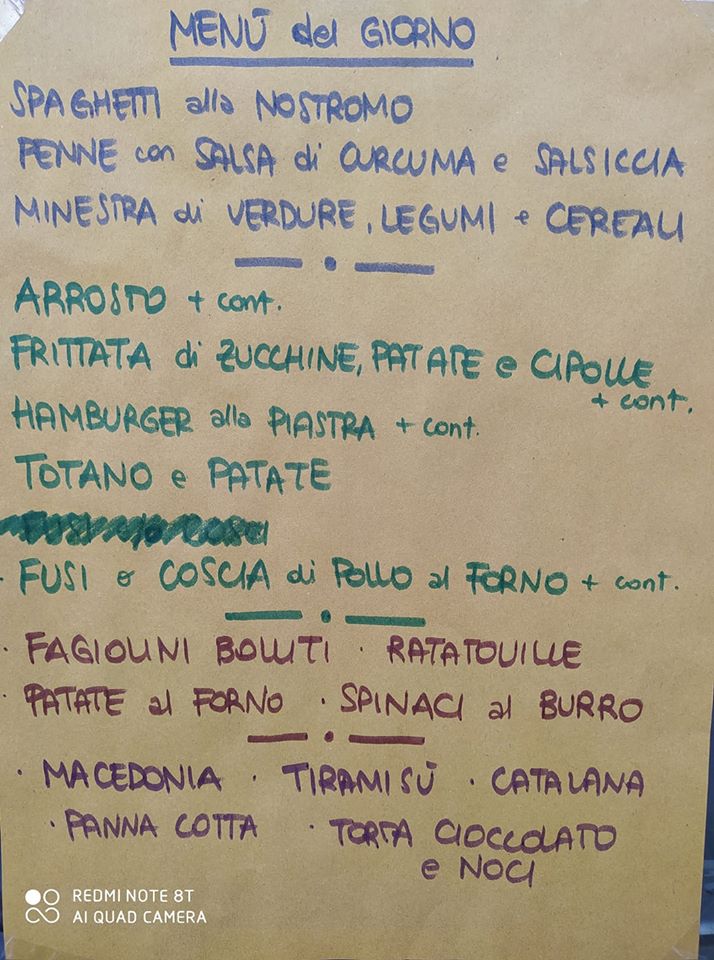 MENÙ del GIORNO
SPAGHETTI alla NOSTROMO
PENNE con SALSA di CURCUMA e SALSICCIA
MINESTRA di VERDURE, LEGUMI e CEREALI
ARROSTO + cont.
FRITTATA di ZUCCHINE, PATATE e CIPOLLE
+ cont.
HAMBURGER alla PIASTRA + cont.
TOTANO e PATATE
· FUSI o COSCIA di POLLO al FORNO + cont.
· FAGIOLINI BOLLITI · RATATOUILLE
· PATATE al FORNO · SPINACI al BURRO
· MACEDONIA · TIRAMISÙ · CATALANA
· PANNA COTTA · TORTA CIOCCOLATO
e NOCI
REDMI NOTE 8T
AI QUAD CAMERA